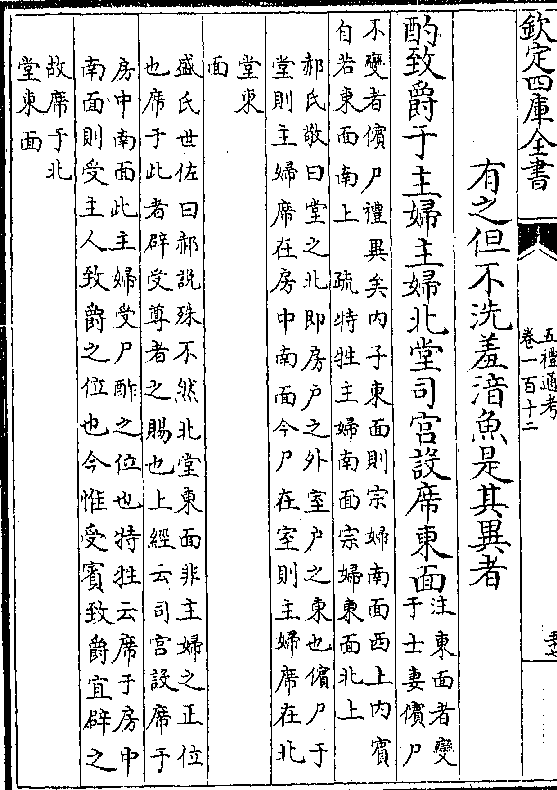 欽定四庫全書
五禮通考
卷一百十二
有之但不洗羞湆魚是其異者
酌致爵于主婦主婦北堂司宫設席東面
注東面者變
于士妻儐尸
不變者儐尸禮異矣内子東面則宗婦南面西上内賓
自若東面南上 疏特牲主婦南面宗婦東面北上
郝氏敬曰堂之北即房户之外室户之東也儐尸于
堂則主婦席在房中南面今尸在室則主婦席在北
堂東
面
盛氏世佐曰郝說殊不然北堂東面非主婦之正位
也席于此者辟受尊者之賜也上經云司宫設席于
房中南面此主婦受尸酢之位也特牲云席于房中
南面則受主人致爵之位也今惟受賓致爵宜辟之
故席于北
堂東面